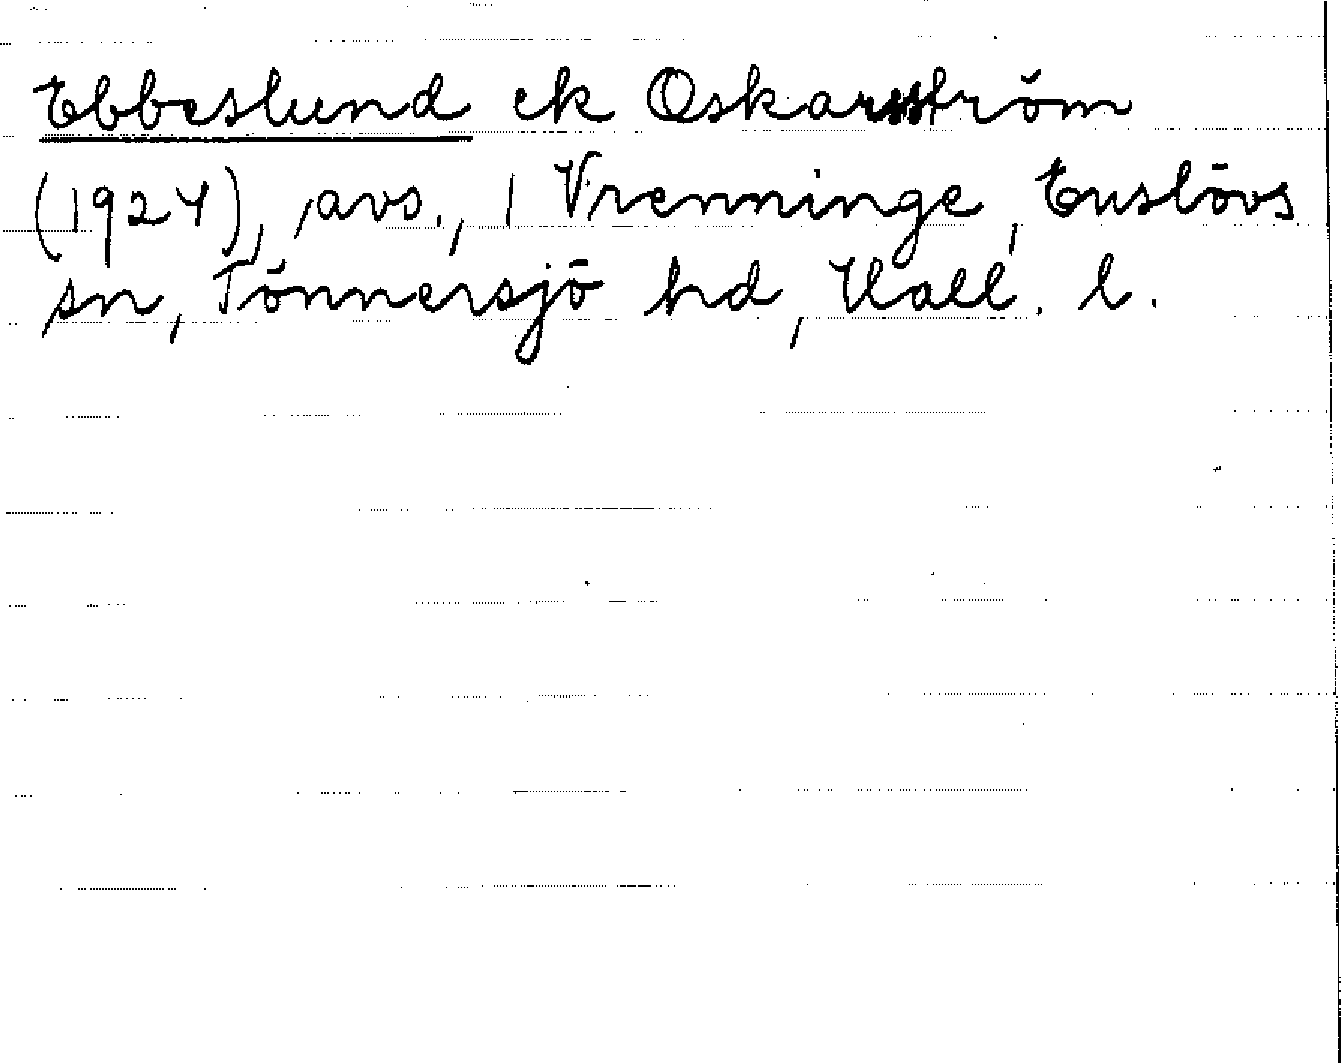 Ebbeslund ek Oskarström
(1924), avs., / Vrenninge, Enslövs
sn, Tönnersjö hd, Hall. l.